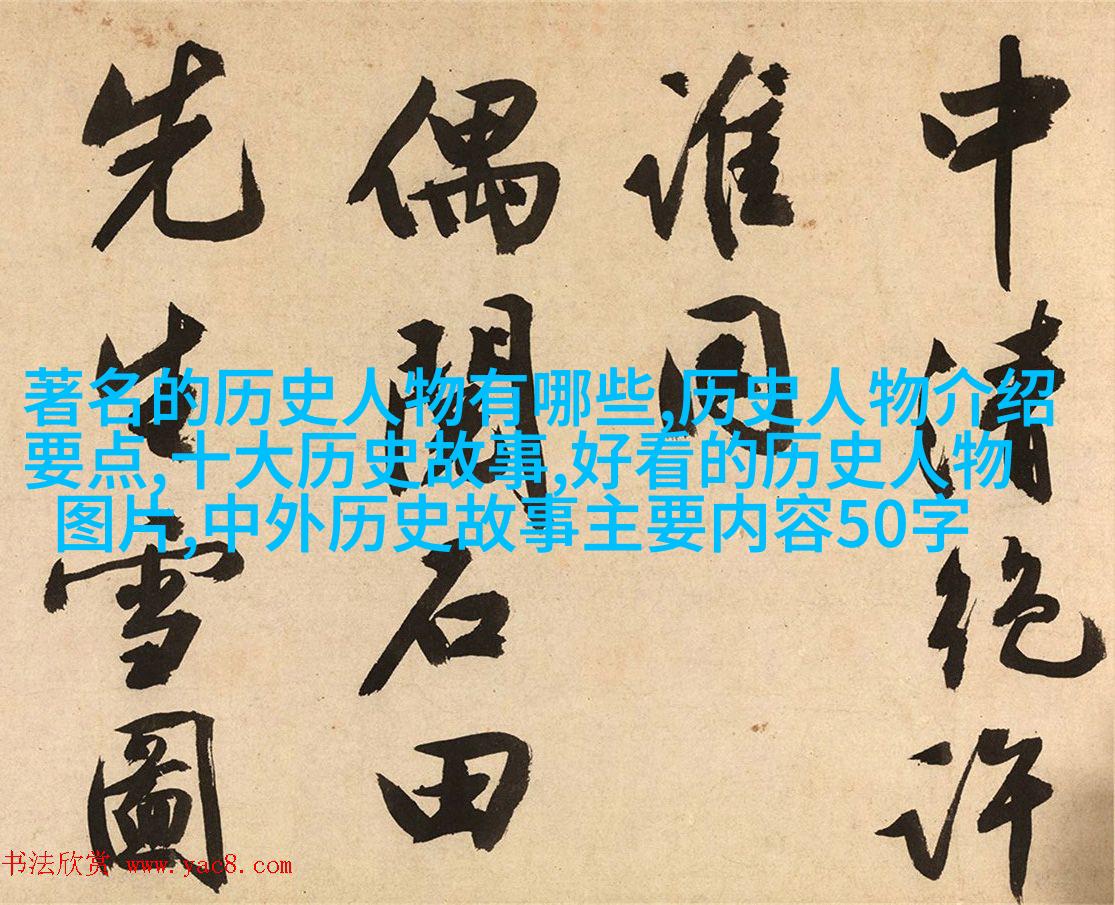 中清絕許
誰同
偶閱石田
先生雪圖
著名的历史人物有哪些,历史人物介绍
要点,十大历史故事,好看的历史人物
图片,中外历史故事主要内容50字
书法欣赏 www.yac8.com